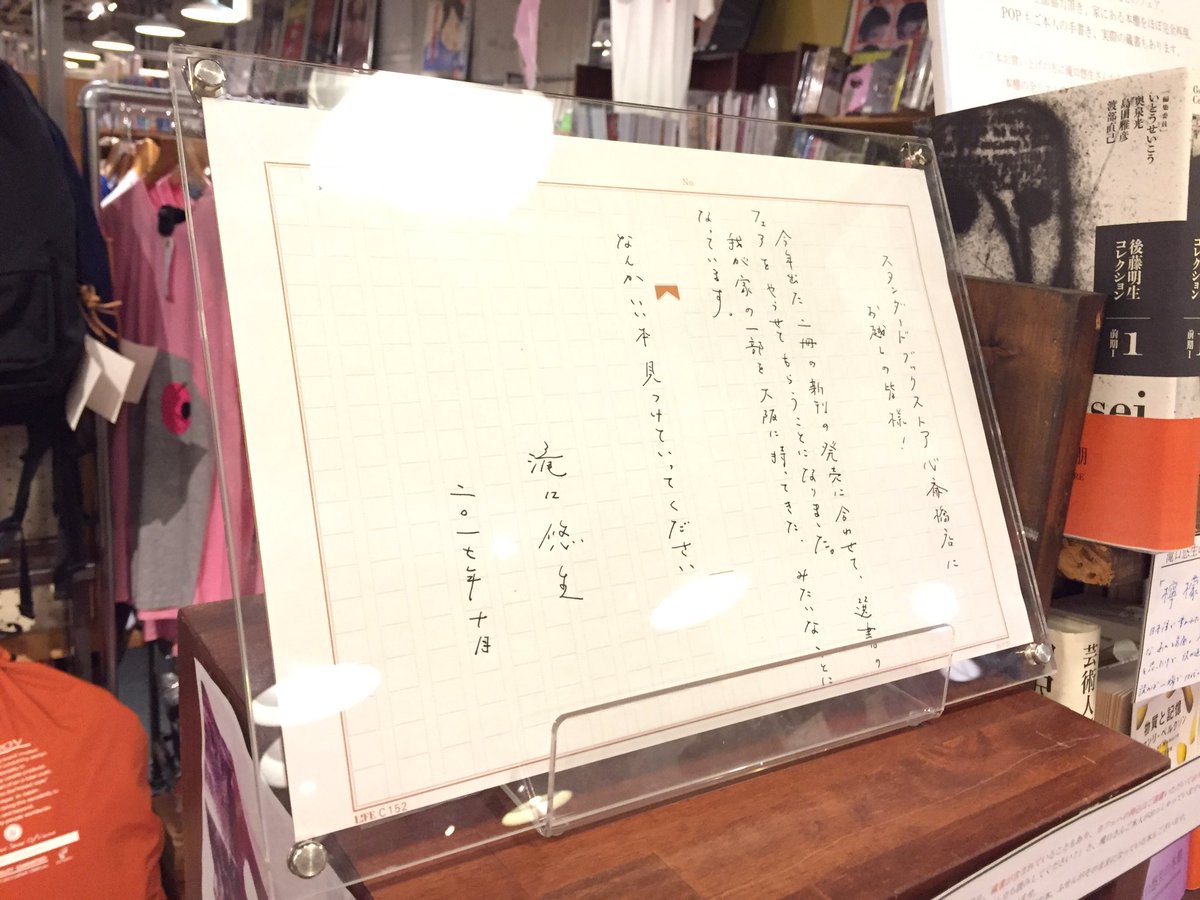 スタンダードブックストア心斎橋店に
お越しの皆様!
今年出た二冊の新刊の発売に合わせて、選書の
フェアをやらせてもらうことになりました。
我が家の一部を大阪に持ってきた、みたいなことに
なっています。
なんかいい本見つけていってください
滝口悠生
二〇一七年十月
No.
LIFE C152
家にある本棚をほぼ完全再現。
POPもご本人の手書き、実際の蔵書もあります。
[編集委員]
いとうせいこう
奥泉光
島田雅彦
渡部直己
後藤明生
コレクション
1
前期I
芸術人
檸檬
物質と記憶